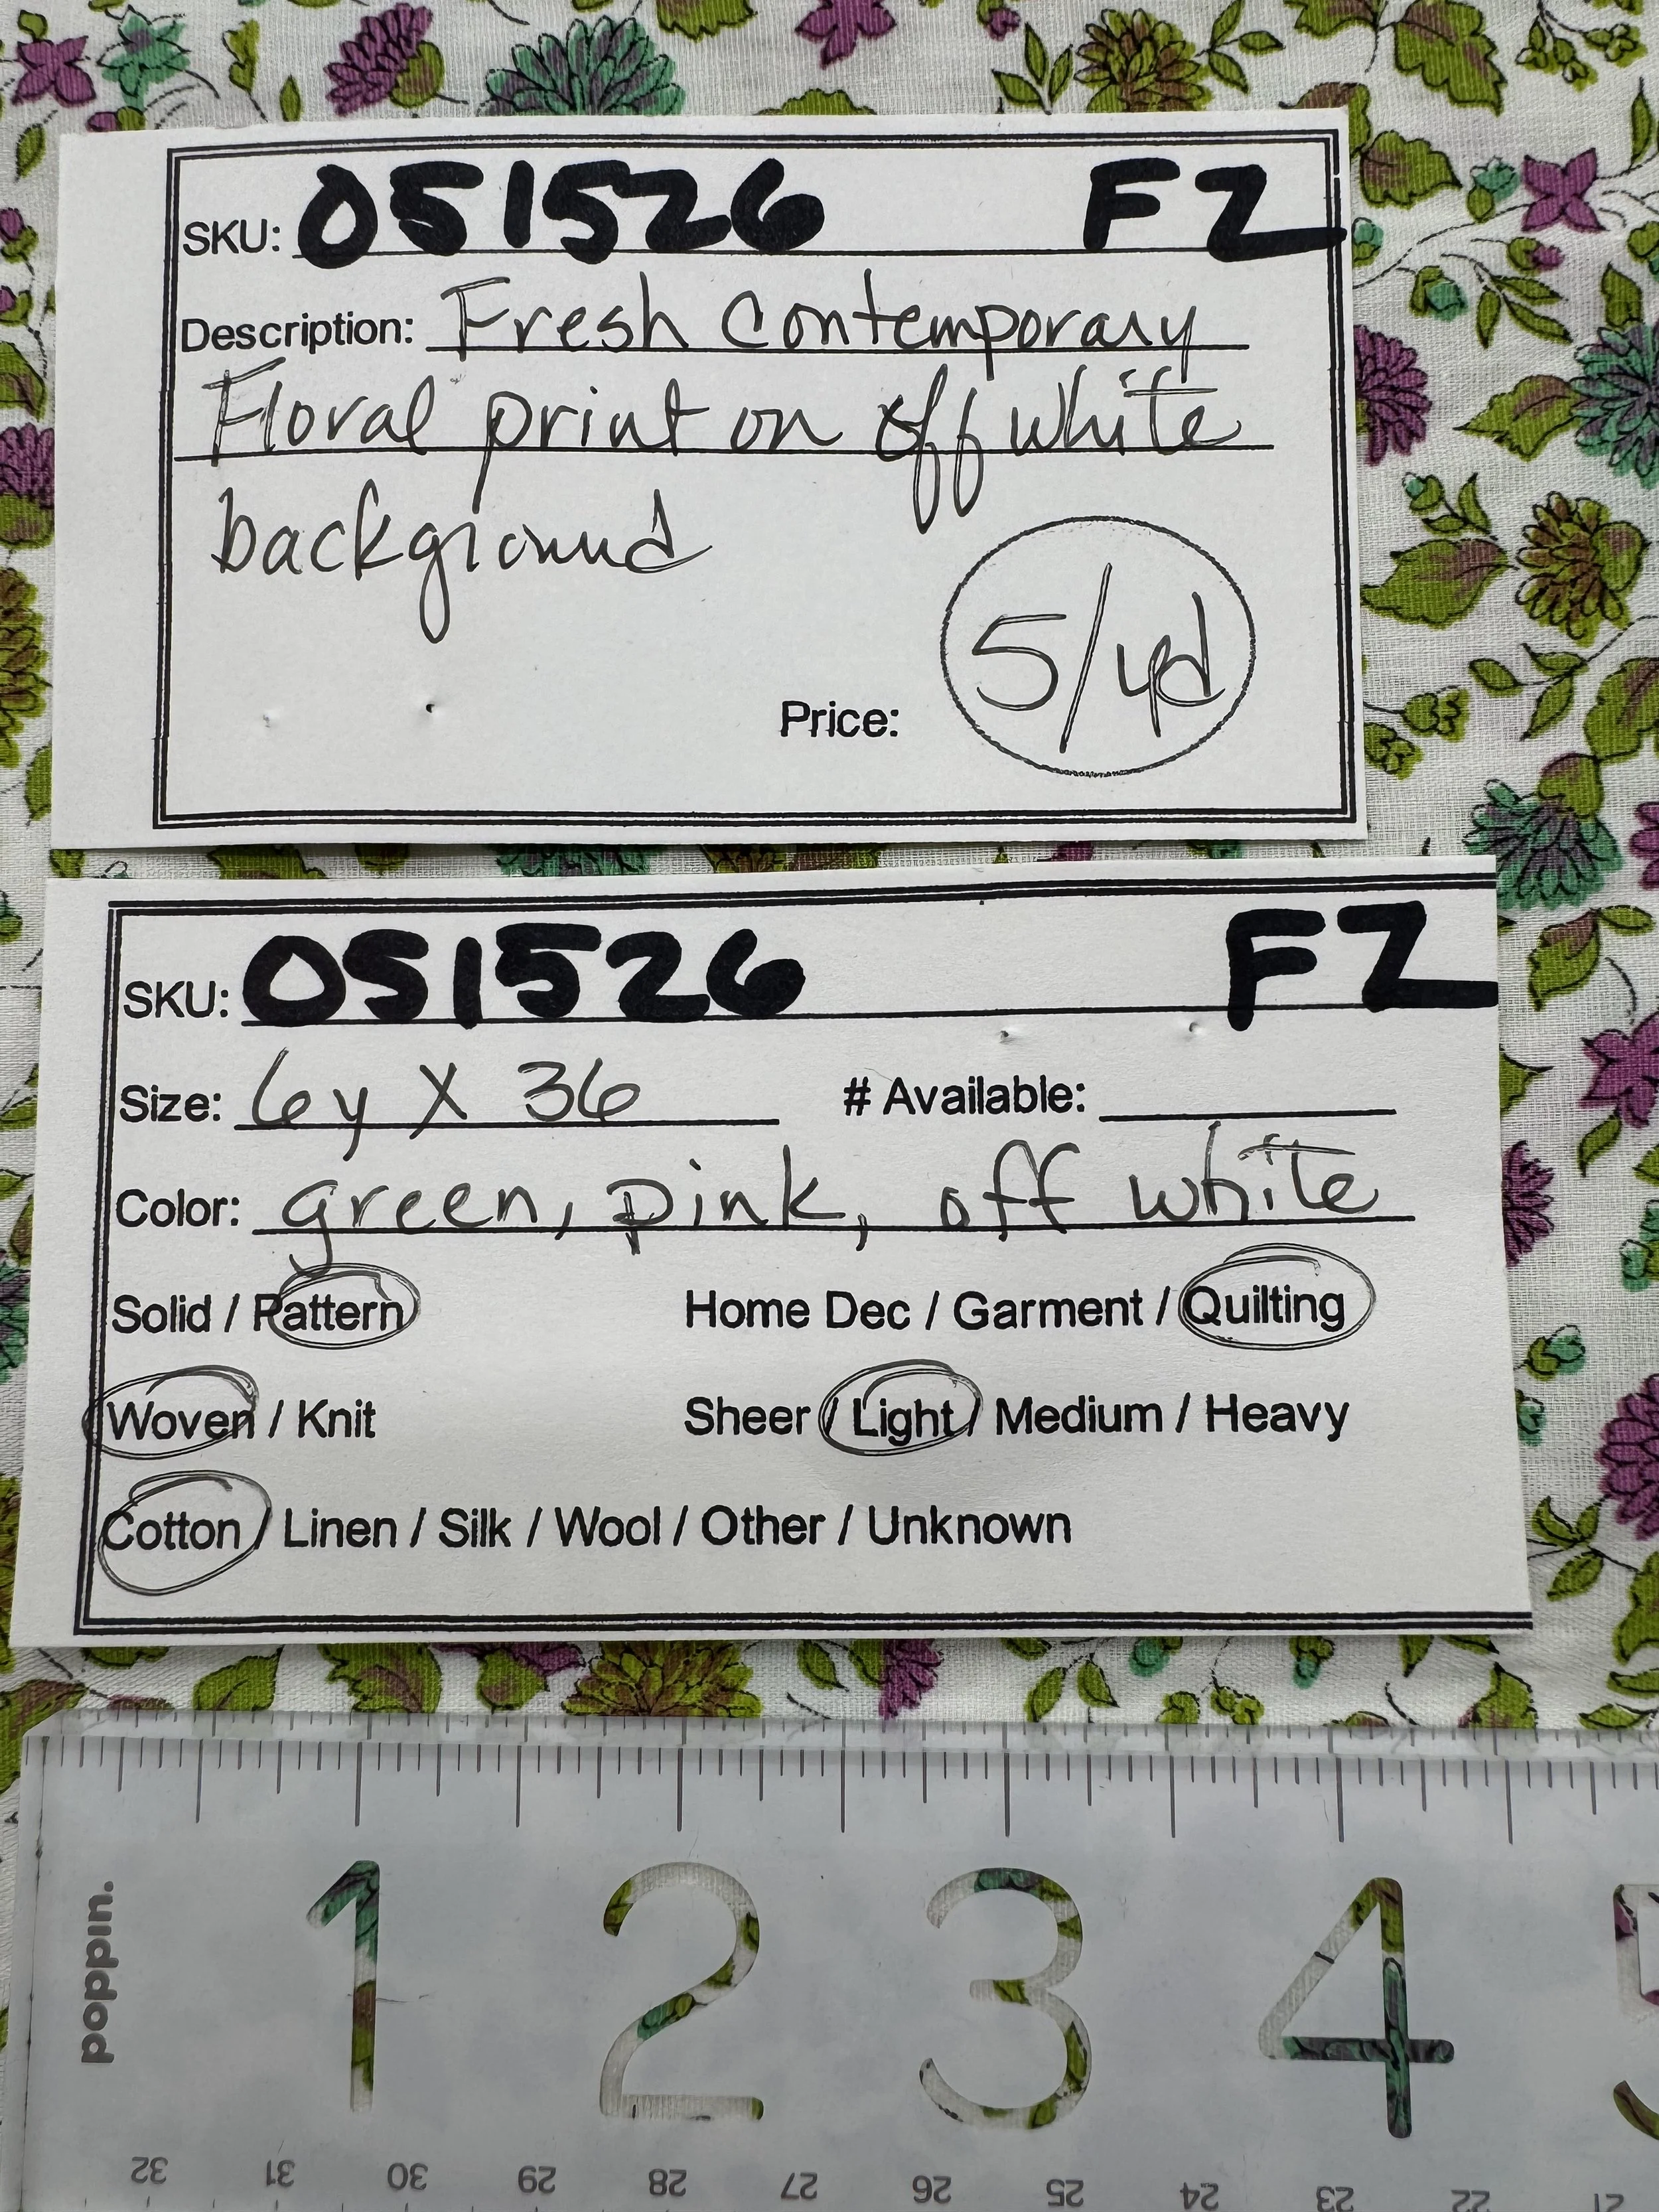 SKU: 051526 FZ
Description: Fresh Contemporary
Floral print on off white
background
Price: 5/yd
SKU: 051526 FZ
Size: 6y X 36 # Available:
Color: green, pink, off white
Solid / Pattern Home Dec / Garment / Quilting
Woven / Knit Sheer / Light / Medium / Heavy
Cotton / Linen / Silk / Wool / Other / Unknown
poppin.
1 2 3 4 5
32 31 30 29 28 27 26 25 24 23 22 21